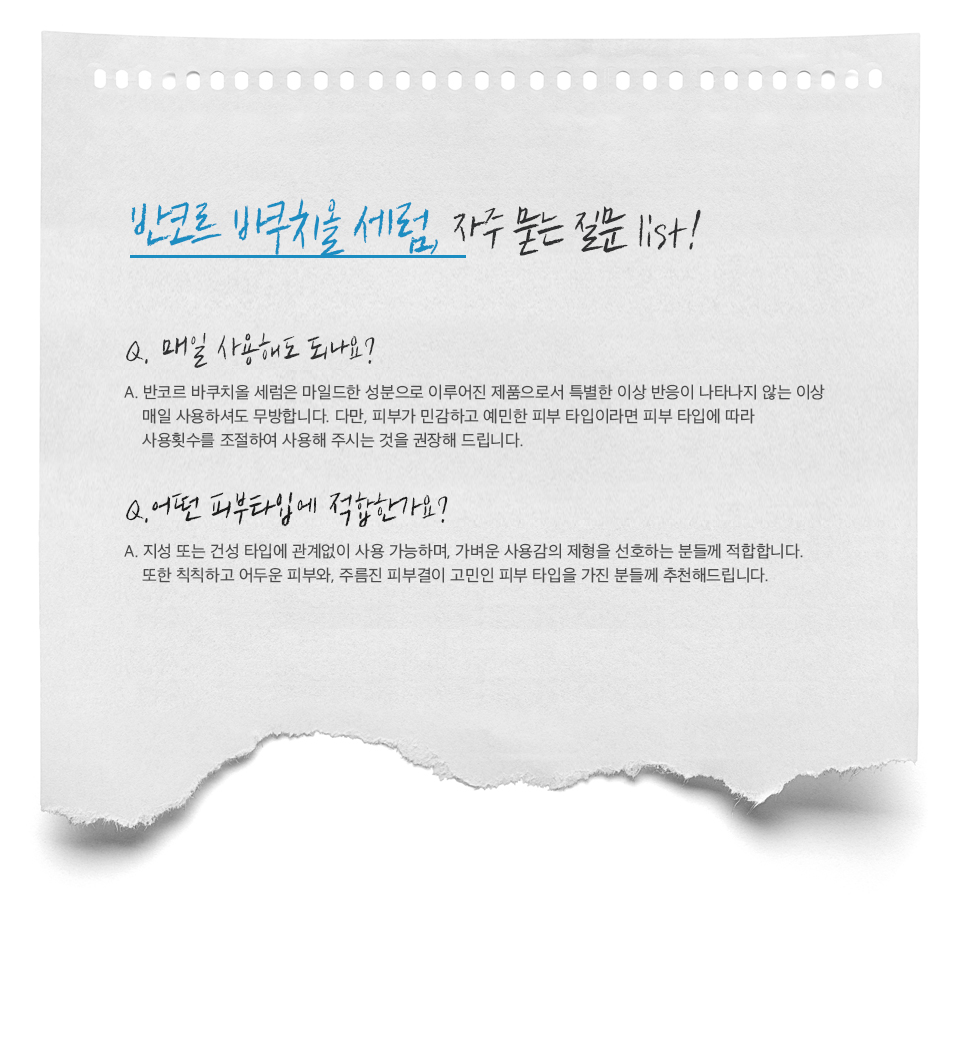 반코르 바쿠치올 세럼, 자주 묻는 질문 list!
Q. 매일 사용해도 되나요?
A. 반코르 바쿠치올 세럼은 마일드한 성분으로 이루어진 제품으로서 특별한 이상 반응이 나타나지 않는 이상
매일 사용하셔도 무방합니다. 다만, 피부가 민감하고 예민한 피부 타입이라면 피부 타입에 따라
사용횟수를 조절하여 사용해 주시는 것을 권장해 드립니다.
Q.어떤 피부타입에 적합한가요?
A. 지성 또는 건성 타입에 관계없이 사용 가능하며, 가벼운 사용감의 제형을 선호하는 분들께 적합합니다.
또한 칙칙하고 어두운 피부와, 주름진 피부결이 고민인 피부 타입을 가진 분들께 추천해드립니다.